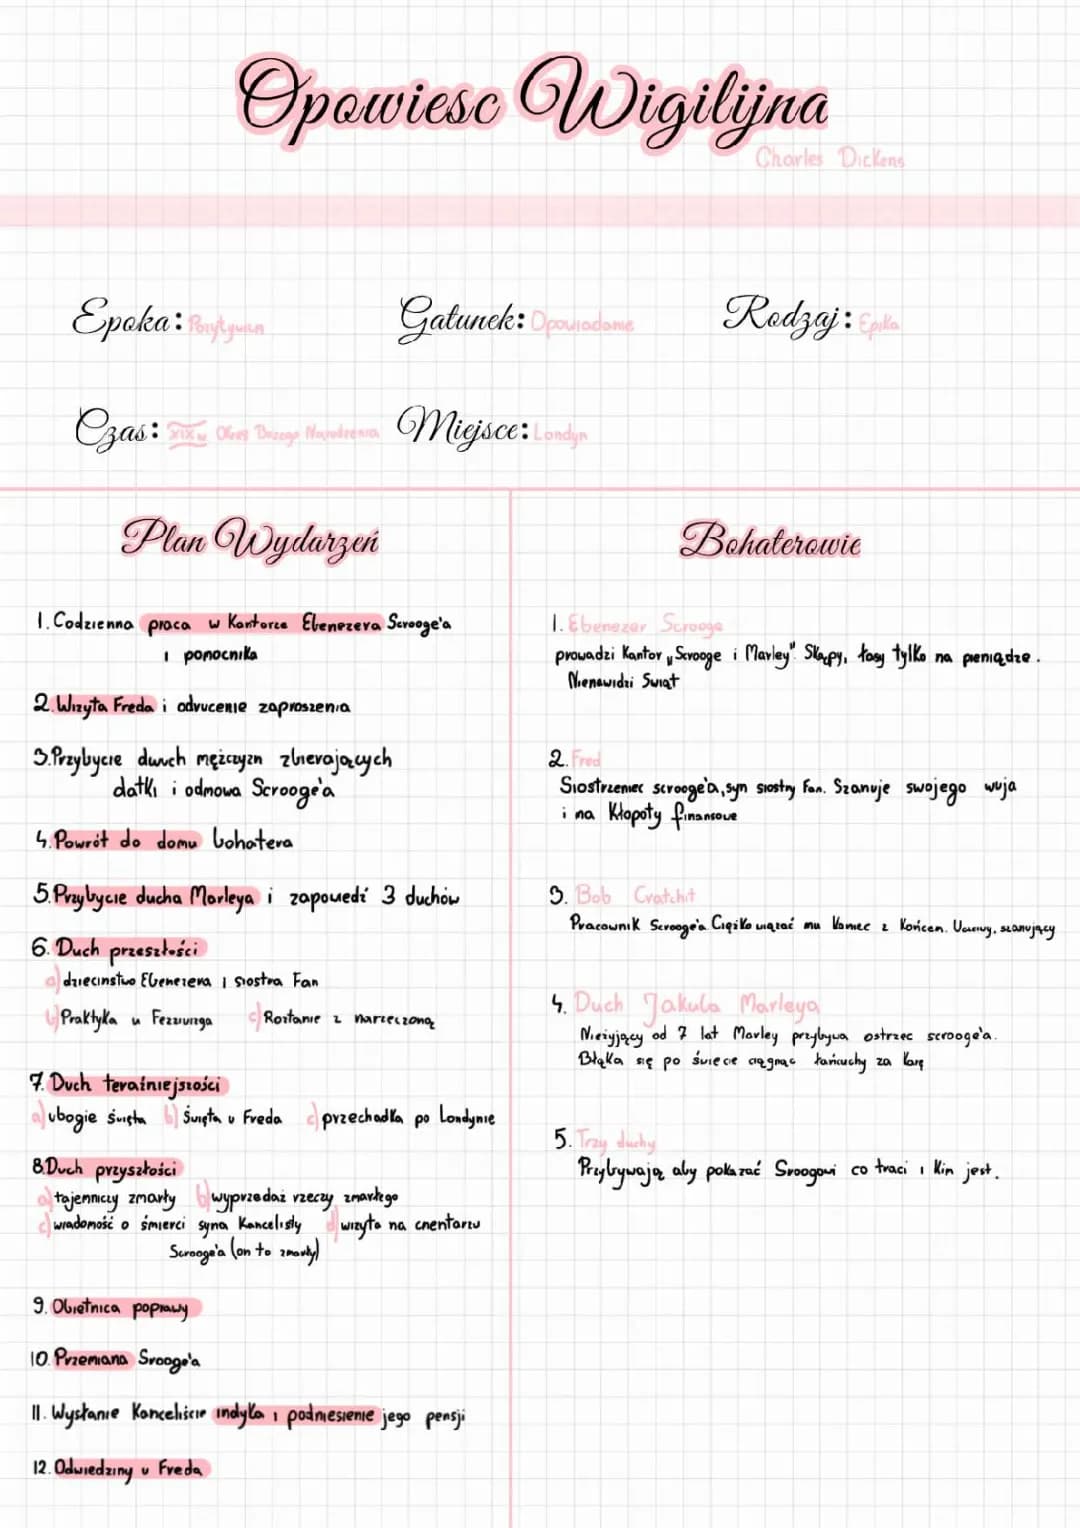 Opowiesc Wigilijna
Charles Dickens
Epoka: Pozytywizm
Gatunek: Opowiadanie
Rodzaj: Epika
Czas: XIX w Okres Bożego Narodzenia
Miejsce: Londyn
Plan Wydarzeń
1. Codzienna praca w Kantorze Ebenezera Scrooge'a
i pomocnika
2. Wizyta Freda i odrzucenie zaproszenia
3. Przybycie dwuch mężczyzn zbierających
datki i odmowa Scrooge'a
4. Powrót do domu bohatera
5. Przybycie ducha Marleya i zapowiedź 3 duchów
6. Duch przeszłości
a) dzieciństwo Ebenezera i siostra Fan
b) Praktyka u Fezziwiga c) Roztanie z narzeczoną
7. Duch teraźniejszości
a) ubogie święta b) Święta u Freda c) przechadka po Londynie
8. Duch przyszłości
a) tajemniczy zmarły b) wyprzedaż rzeczy zmarłego
c) wiadomość o śmierci syna Kancelisty d) wizyta na cmentarzu
Scrooge'a (on to zmarły)
9. Obietnica poprawy
10. Przemiana Srooge'a
11. Wysłanie Kanceliście indyka i podniesienie jego pensji
12. Odwiedziny u Freda
Bohaterowie
1. Ebenezer Scrooge
prowadzi Kantor „Scrooge i Marley". Skąpy, łasy tylko na pieniądze.
Nienawidzi Świąt
2. Fred
Siostrzeniec scrooge'a, syn siostry Fan. Szanuje swojego wuja
i ma Kłopoty finansowe
3. Bob Cratchit
Pracownik Scrooge'a. Ciężko wiązać mu Koniec z Końcem. Uczciwy, szanujący
4. Duch Jakuba Marleya
Nieżyjący od 7 lat Marley przybywa ostrzec scrooge'a.
Błąka się po świecie ciągnąc łańcuchy za karę
5. Trzy duchy
Przybywają aby pokazać Sroogowi co traci i Kim jest.